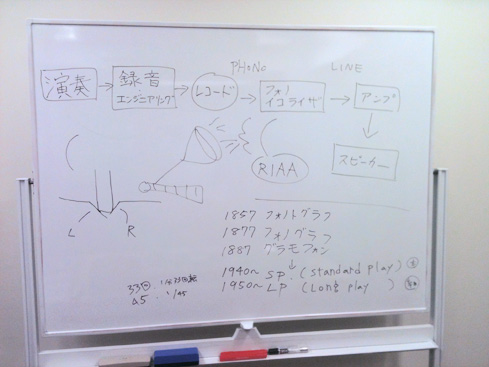 PHONO LINE
演奏 → 録音 エンジニアリング → レコード → フォノ イコライザ → アンプ
スピーカー
RIAA
L R
1857 フォノトグラフ
1877 フォノグラフ
1887 グラモフォン
1940~ SP (standard play)
1950~ LP (Long play )
33回
45